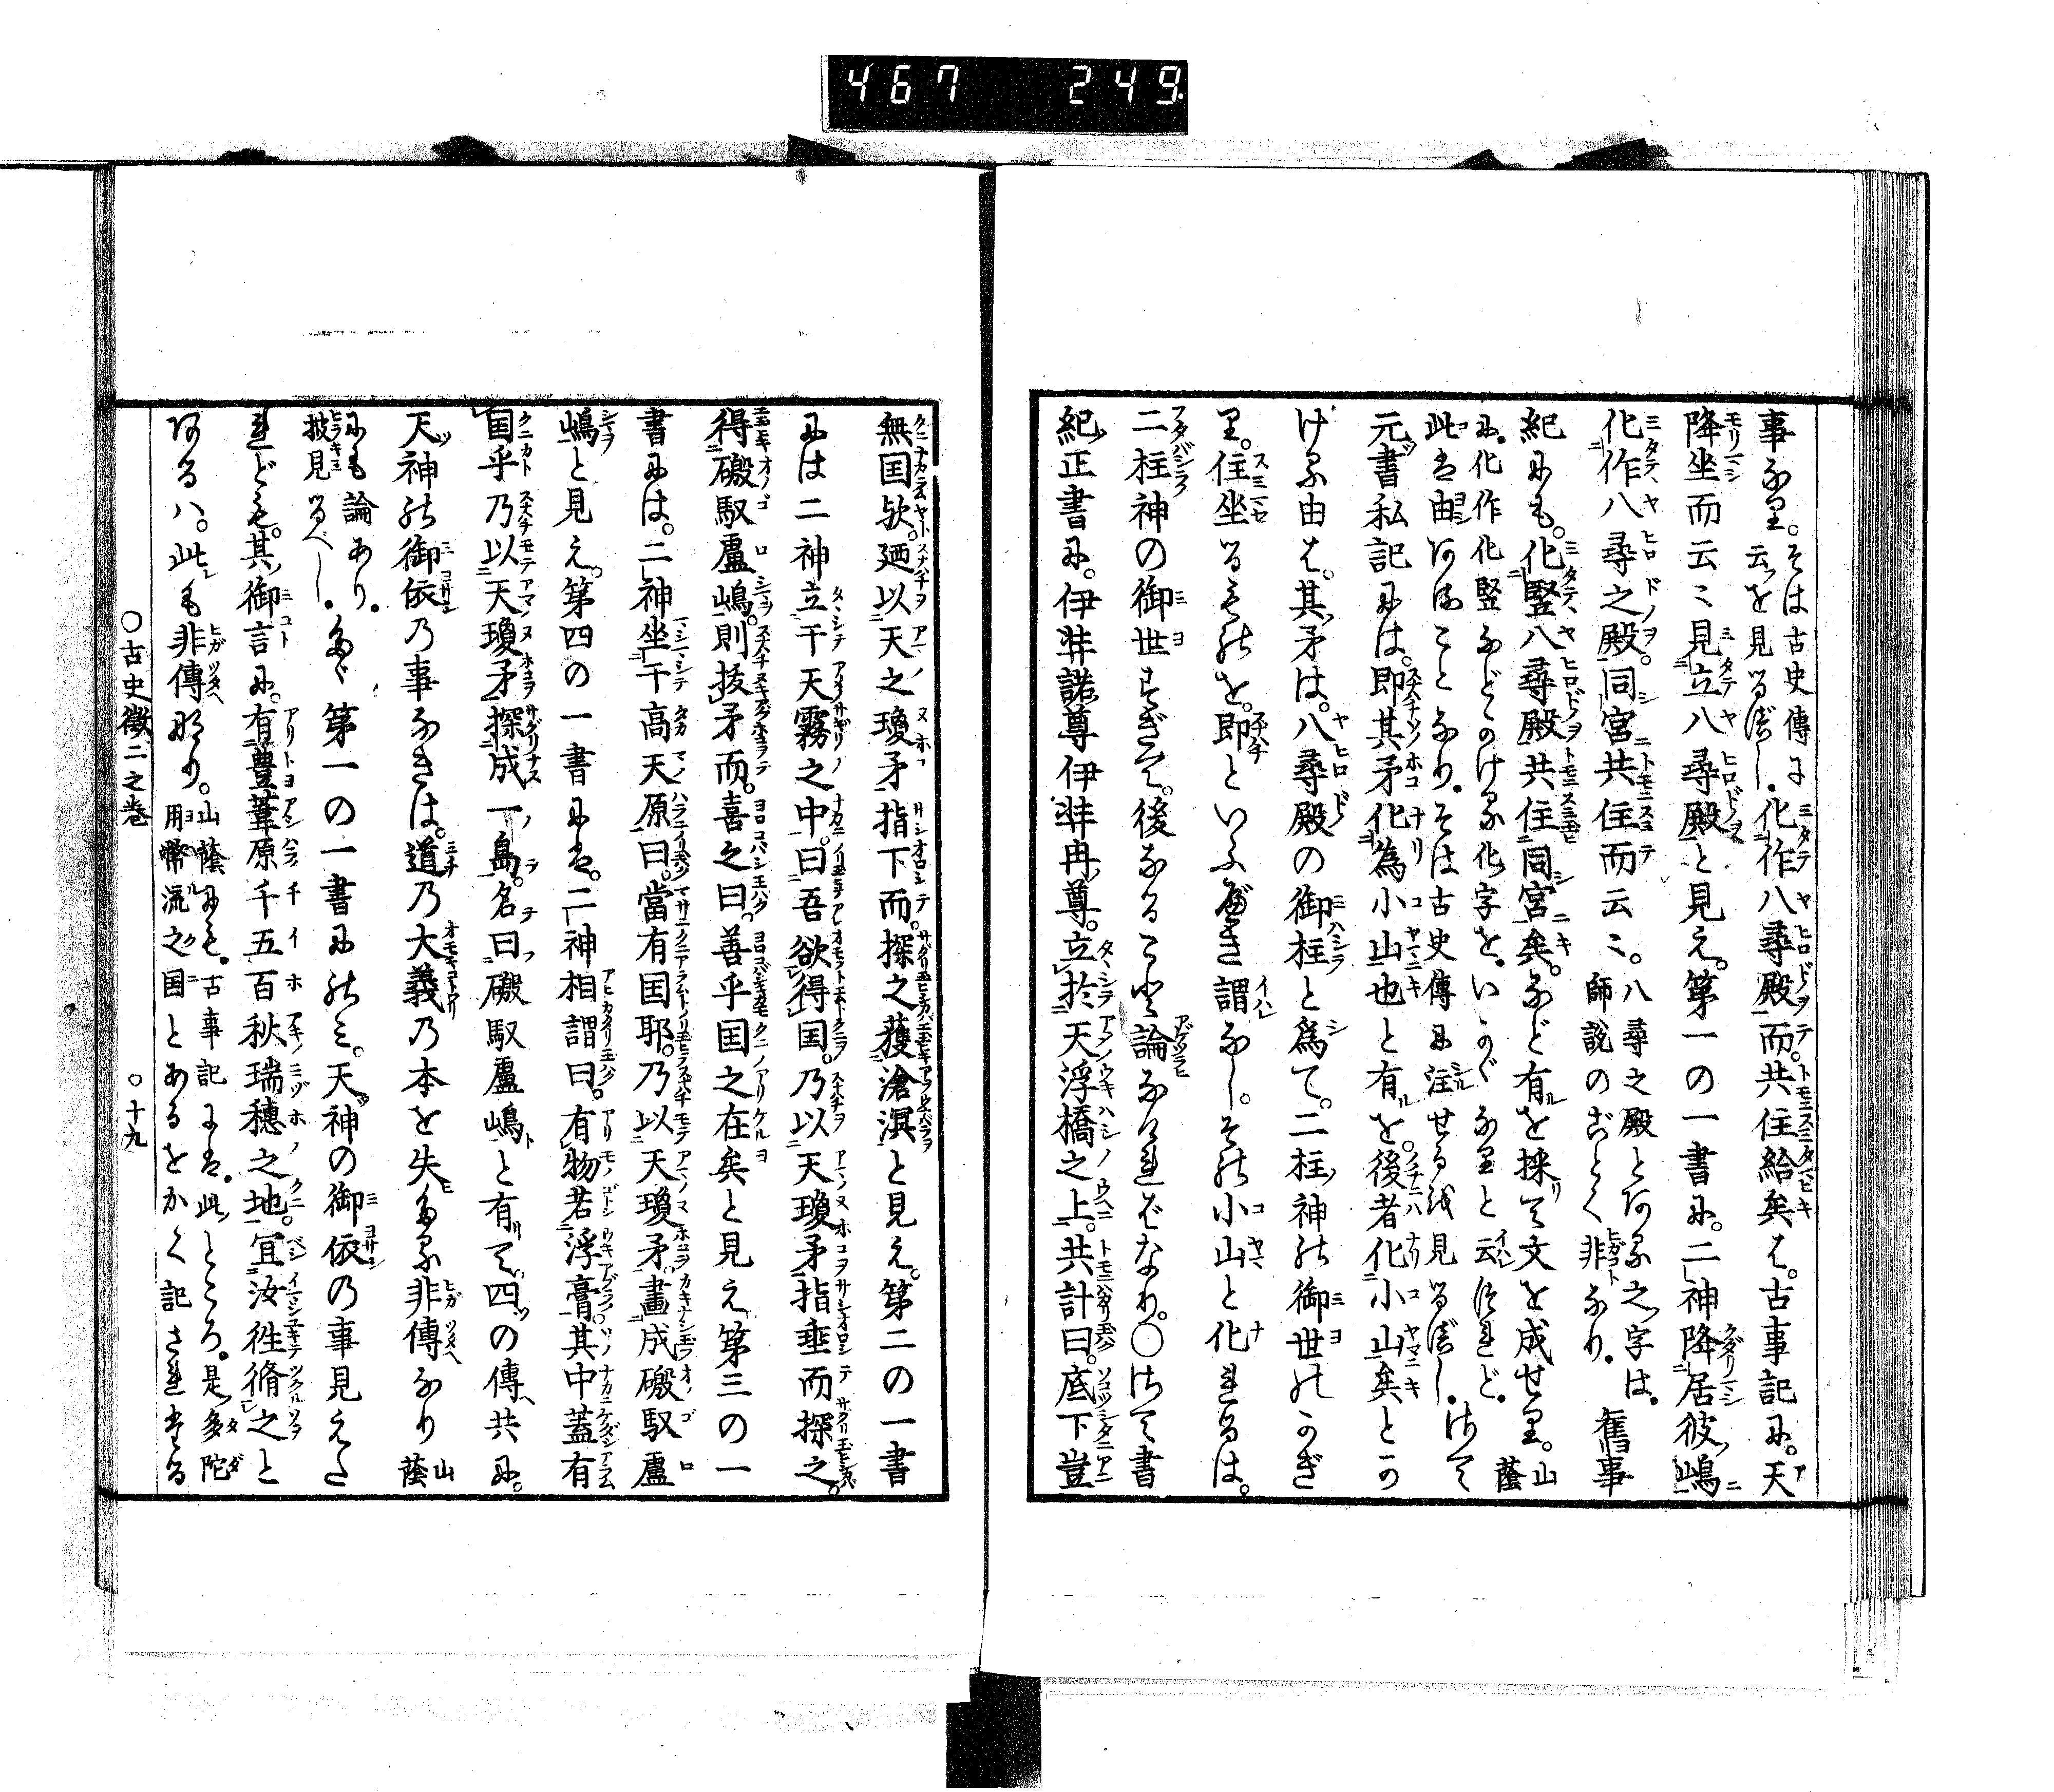 467 249
事なり。そは古史傳に云を見るべし。化作八尋殿而。共住給矣は。古事記に。天
降坐而云々見立八尋殿と見え。第一の一書に。二神降居彼嶋
化作八尋之殿。同宮共住而云々。八尋之殿とある之字は。師説のごとく非なり。舊事
紀にも。化竪八尋殿共住同宮矣。など有を採て文を成せり。山蔭
に。化作化竪などのける化字を。いかゞなりと云つれど。此は由あることなり。そは古史傳に注せるを見るべし。さて
元書私記には。即其矛化為小山也と有を。後者化小山矣とか
ける由は。其矛は。八尋殿の御柱と為て。二柱神の御世のかぎ
り。住坐るものを。即といふべき謂なし。その小山と化れるは。
二柱神の御世すぎて。後なること論なければなり。○さて書
紀正書に。伊弉諾尊伊弉冉尊。立於天浮橋之上。共計曰。底下豈
無国歟。廼以天之瓊矛指下而。探之獲滄溟と見え。第二の一書
には二神立于天霧之中。曰吾欲得国。乃以天瓊矛指垂而探之。
得磤馭盧嶋。則抜矛而。喜之曰。善乎国之在矣と見え第三の一
書には。二神坐于高天原曰。當有国耶。乃以天瓊矛。畫成磤馭盧
嶋と見え。第四の一書には。二神相謂曰。有物若浮膏。其中蓋有
国乎乃以天瓊矛探成一島。名曰磤馭盧嶋と有て。四の傳共に。
天神の御依の事なきは。道乃大義乃本を失たる非傳なり山蔭
にも論あり。披見るべし。たゞ第一の一書にのみ。天神の御依の事見えた
れども。其御言に。有豊葦原千五百秋瑞穗之地。宜汝徃脩之と
あるハ。此も非傳なり。山蔭にも。古事記には。此ところ。是多陀用幣流之国とあるをかく記されたる
○古史徴二之巻 ○十九